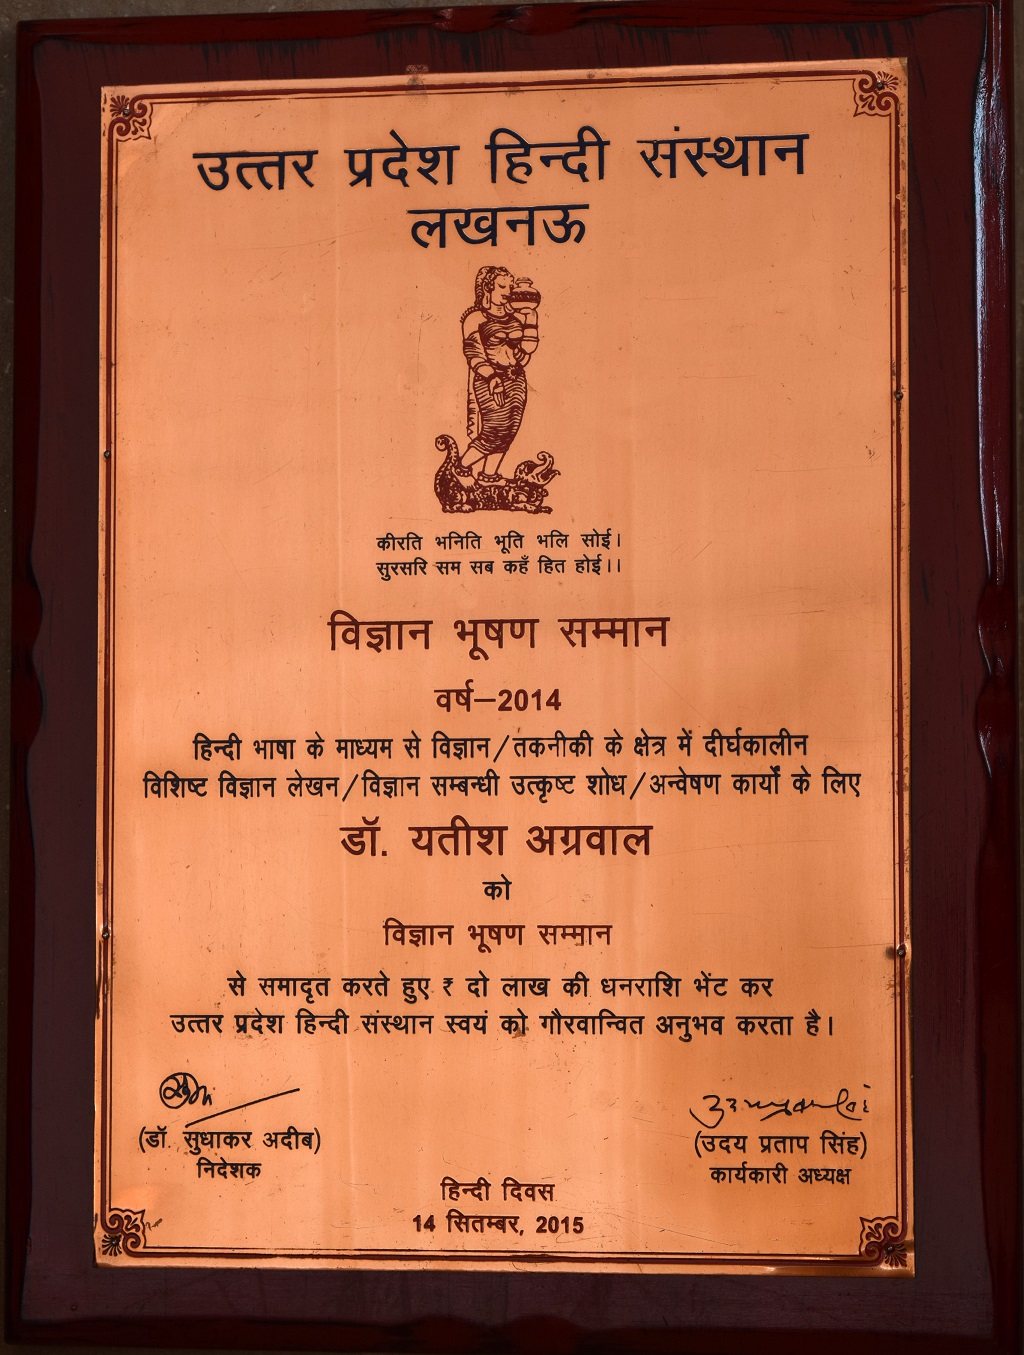 उत्तर प्रदेश हिन्दी संस्थान
लखनऊ
कीरति भनिति भूति भलि सोई।
सुरसरि सम सब कहँ हित होई।।
विज्ञान भूषण सम्मान
वर्ष–2014
हिन्दी भाषा के माध्यम से विज्ञान/तकनीकी के क्षेत्र में दीर्घकालीन
विशिष्ट विज्ञान लेखन/विज्ञान सम्बन्धी उत्कृष्ट शोध/अन्वेषण कार्यों के लिए
डॉ. यतीश अग्रवाल
को
विज्ञान भूषण सम्मान
से समादृत करते हुए ₹ दो लाख की धनराशि भेंट कर
उत्तर प्रदेश हिन्दी संस्थान स्वयं को गौरवान्वित अनुभव करता है।
(डॉ. सुधाकर अदीब)
निदेशक
(उदय प्रताप सिंह)
कार्यकारी अध्यक्ष
हिन्दी दिवस
14 सितम्बर, 2015